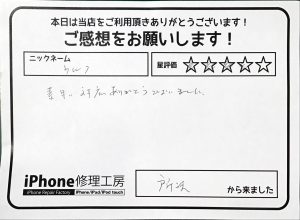 本日は当店をご利用頂きありがとうございます！
ご感想をお願いします！
ニックネーム
星評価 ☆☆☆☆☆
対応ありがとうございました。
iPhone修理工房
iPhone Repair Factory iPhone/iPad/iPod touch
所沢
から来ました